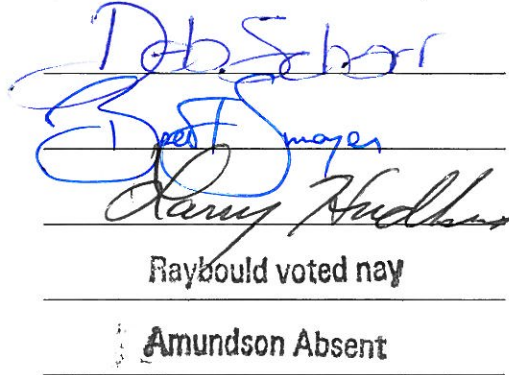 Deb Schorr
Brent Smoyer
Larry Hudkins
Raybould voted nay
Amundson Absent